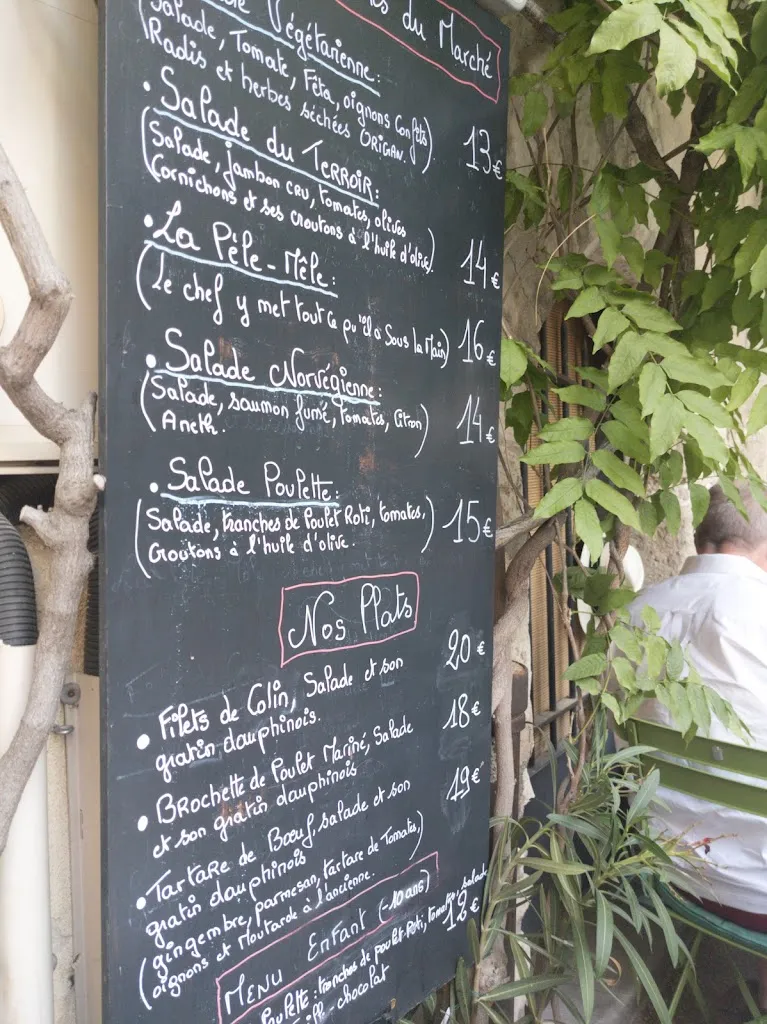 du Marché
Végétarienne:
(Salade, Tomate, Fêta, oignons Confits
Radis et herbes séchées ORIGAN.) 13€
• Salade du TERROIR:
(Salade, jambon cru, tomates, olives
Cornichons et ses croutons à l'huile d'olive) 14€
• La Pêle-Mêle:
(Le chef y met tout ce qu'il a Sous la Main) 16€
• Salade Norvégienne:
(Salade, saumon fumé, tomates, Citron
Aneth.) 14€
• Salade Poulette:
(Salade, tranches de Poulet Roti, tomates,
Croutons à l'huile d'olive.) 15€
Nos Plats
• Filets de Colin, Salade et son 20€
gratin dauphinois.
• BROchette de Poulet Mariné, Salade 18€
et son gratin dauphinois
• TARTARE de Bœuf, salade et son 19€
gratin dauphinois
(gingembre, parmesan, tartare de Tomates,)
oignons et Moutarde à l'ancienne.
MENU ENFANT (-10 ans) 12€
Poulette: tranches de poulet Roti, tomates, salade
chocolat